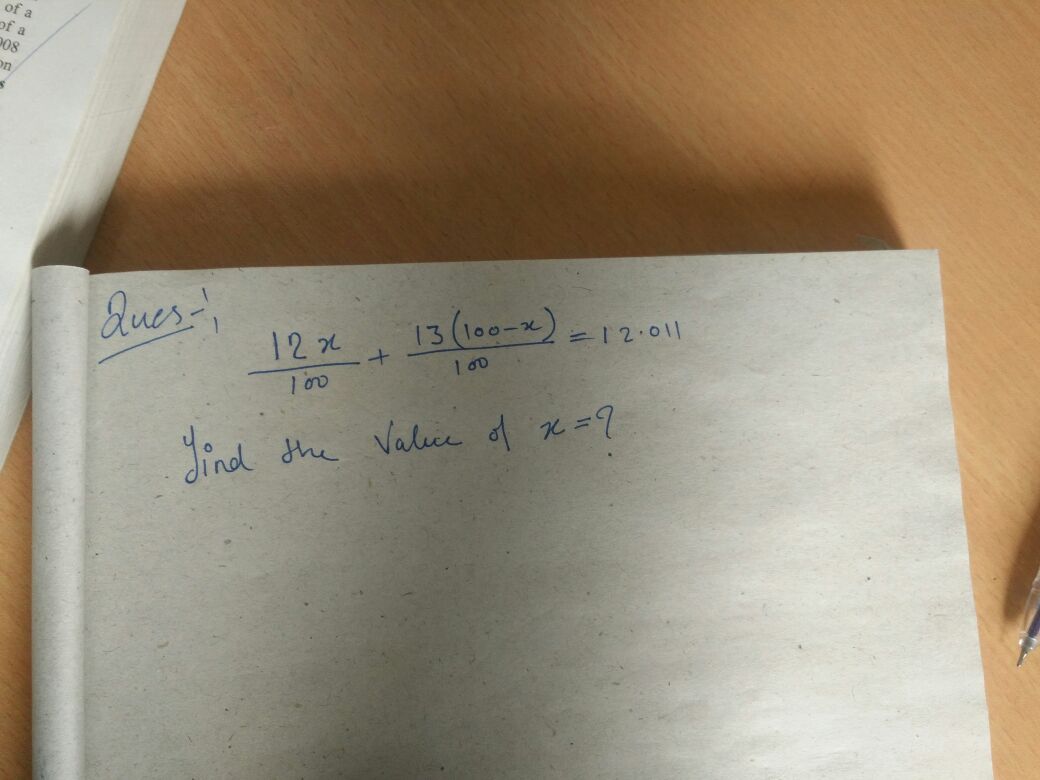 of a
of a
908
on
s
Ques-!
12x/100 + 13(100-x)/100 = 12.011
find the value of x=?